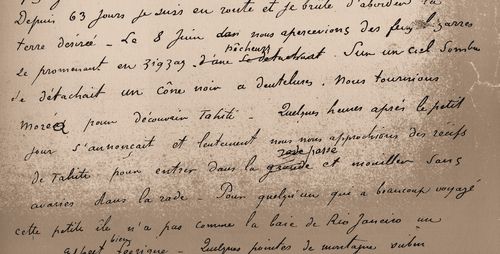 Depuis 63 jours je suis en route et je brule d'aborder la
terre désirée - Le 8 Juin dan nous apercevions des feux bizarres
pêcheurs
se promenant en zigzag - d'une se détachait Sur un ciel Sombre
se détachait un cône noir a dentelures. Nous tournions
Morea pour découvrir Tahiti - Quelques heures après le petit
jour s'annonçait et lentement nous nous approchions des récifs
passe
de Tahiti pour entrer dans la grande et mouiller Sans
avaries dans la rade - Pour quelqu'un que a beaucoup voyagé
cette petite île n'a pas comme la baie de Rio Janeiro un
bien
Quelques pointes de montagne subm